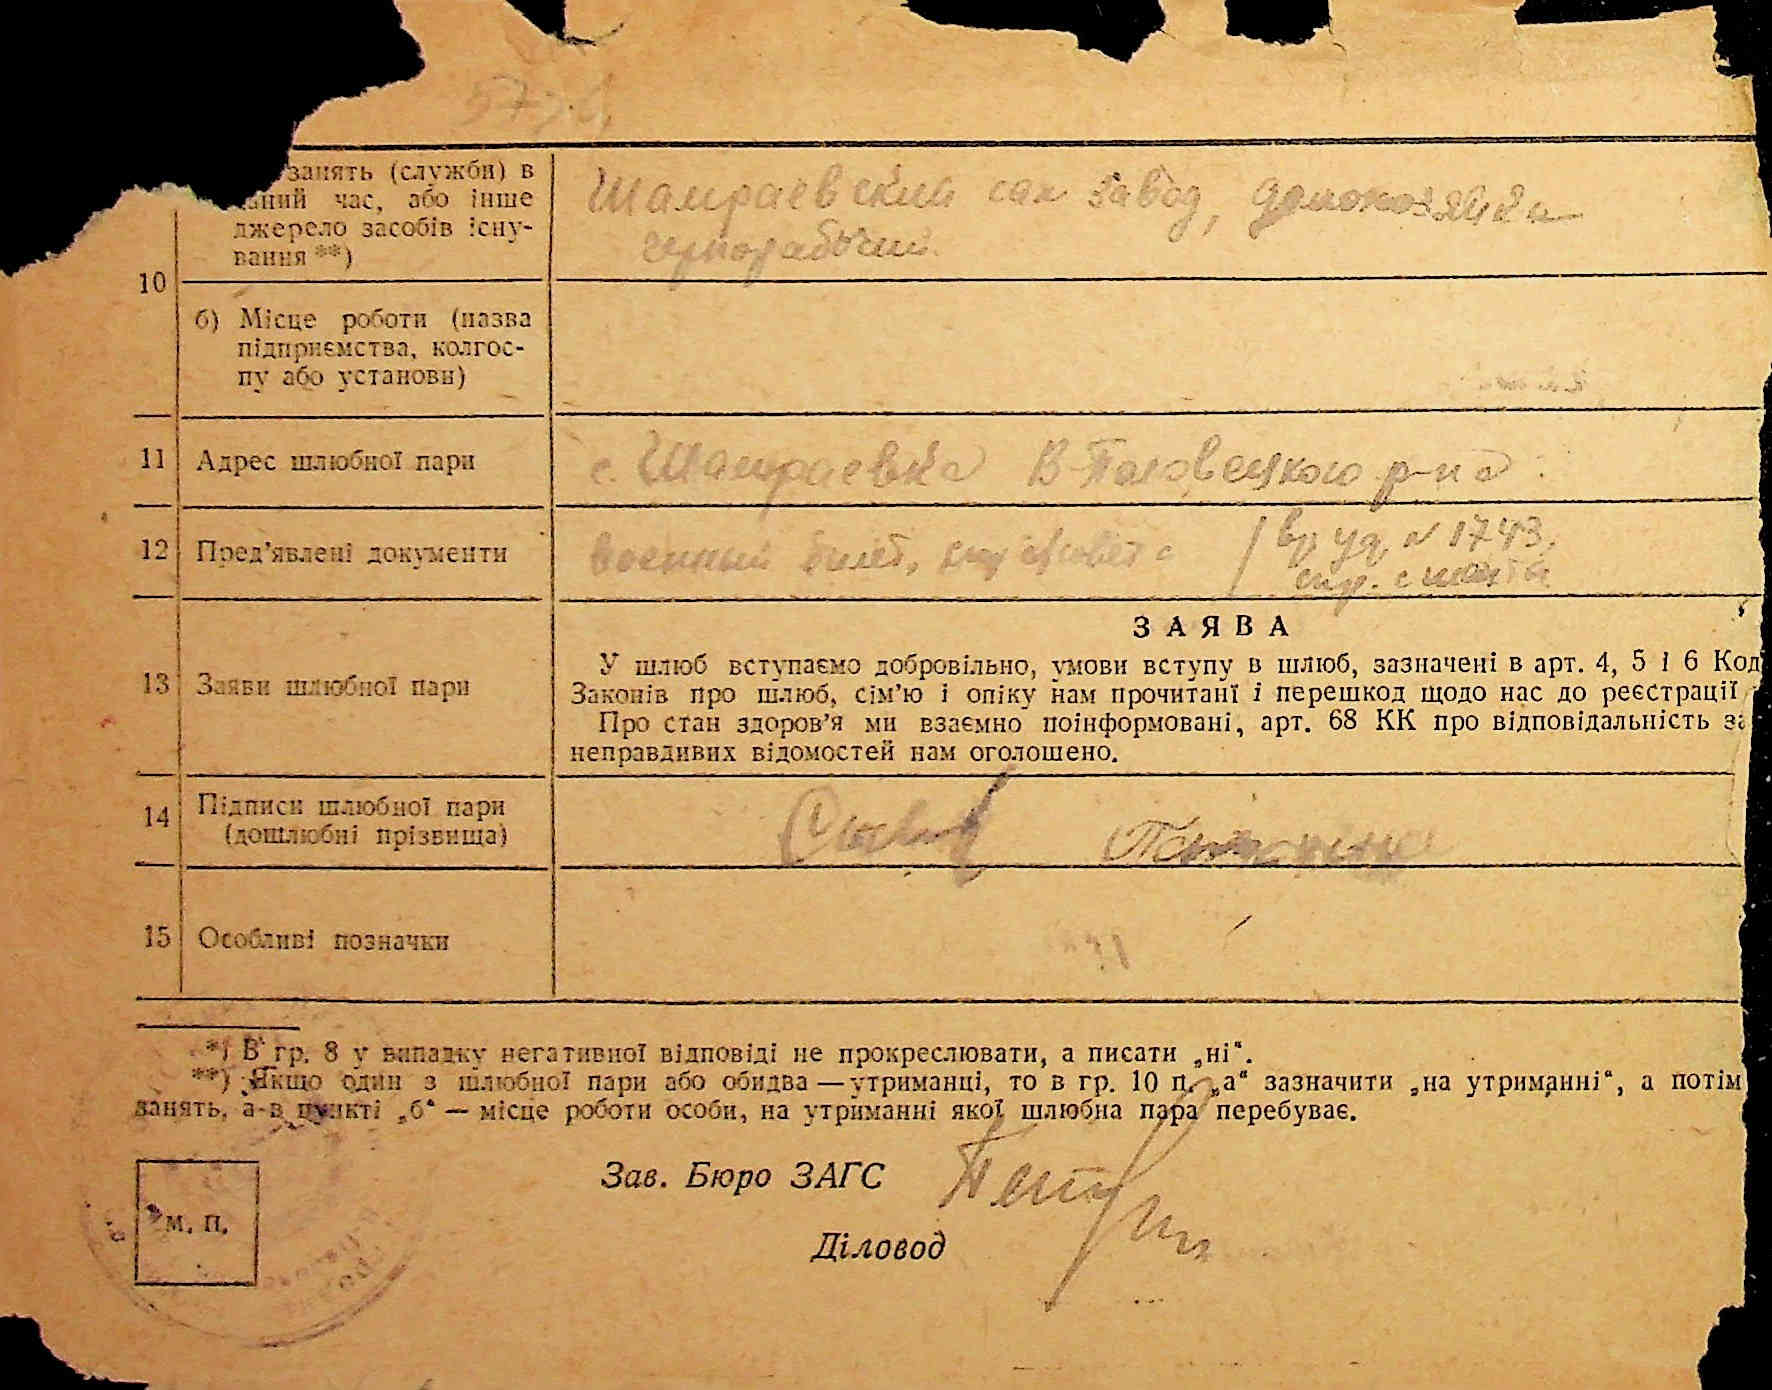 занять (службн) в
аний час, або інше
джерело засобів існу-
вання **)
Шамраевский сах завод, домохозяйка
чернорабочий.
10
б) Місце роботи (назва
підприємства, колгос-
пу або установи)
11 Адрес шлюбної пари
с. Шамраевка В-Половецкого р-на
12 Пред'явлені документи
военный билет, / вр уд N 1743,
спр. с места
ЗАЯВА
13 Заяви шлюбної пари
У шлюб вступаємо добровільно, умови вступу в шлюб, зазначені в арт. 4, 5 і 6 Код
Законів про шлюб, сім'ю і опіку нам прочитані і перешкод щодо нас до реєстрації
Про стан здоров'я ми взаємно поінформовані, арт. 68 КК про відповідальність за
неправдивих відомостей нам оголошено.
14 Підписи шлюбної пари
(дошлюбні прізвища)
15 Особливі позначки
*) В гр. 8 у випадку негативної відповіді не прокреслювати, а писати „ні“.
**) Якщо один з шлюбної пари або обидва — утриманці, то в гр. 10 п. „а“ зазначити „на утриманні“, а потім
занять, а в пункті „б“ — місце роботи особи, на утриманні якої шлюбна пара перебуває.
Зав. Бюро ЗАГС
М. П.
Діловод